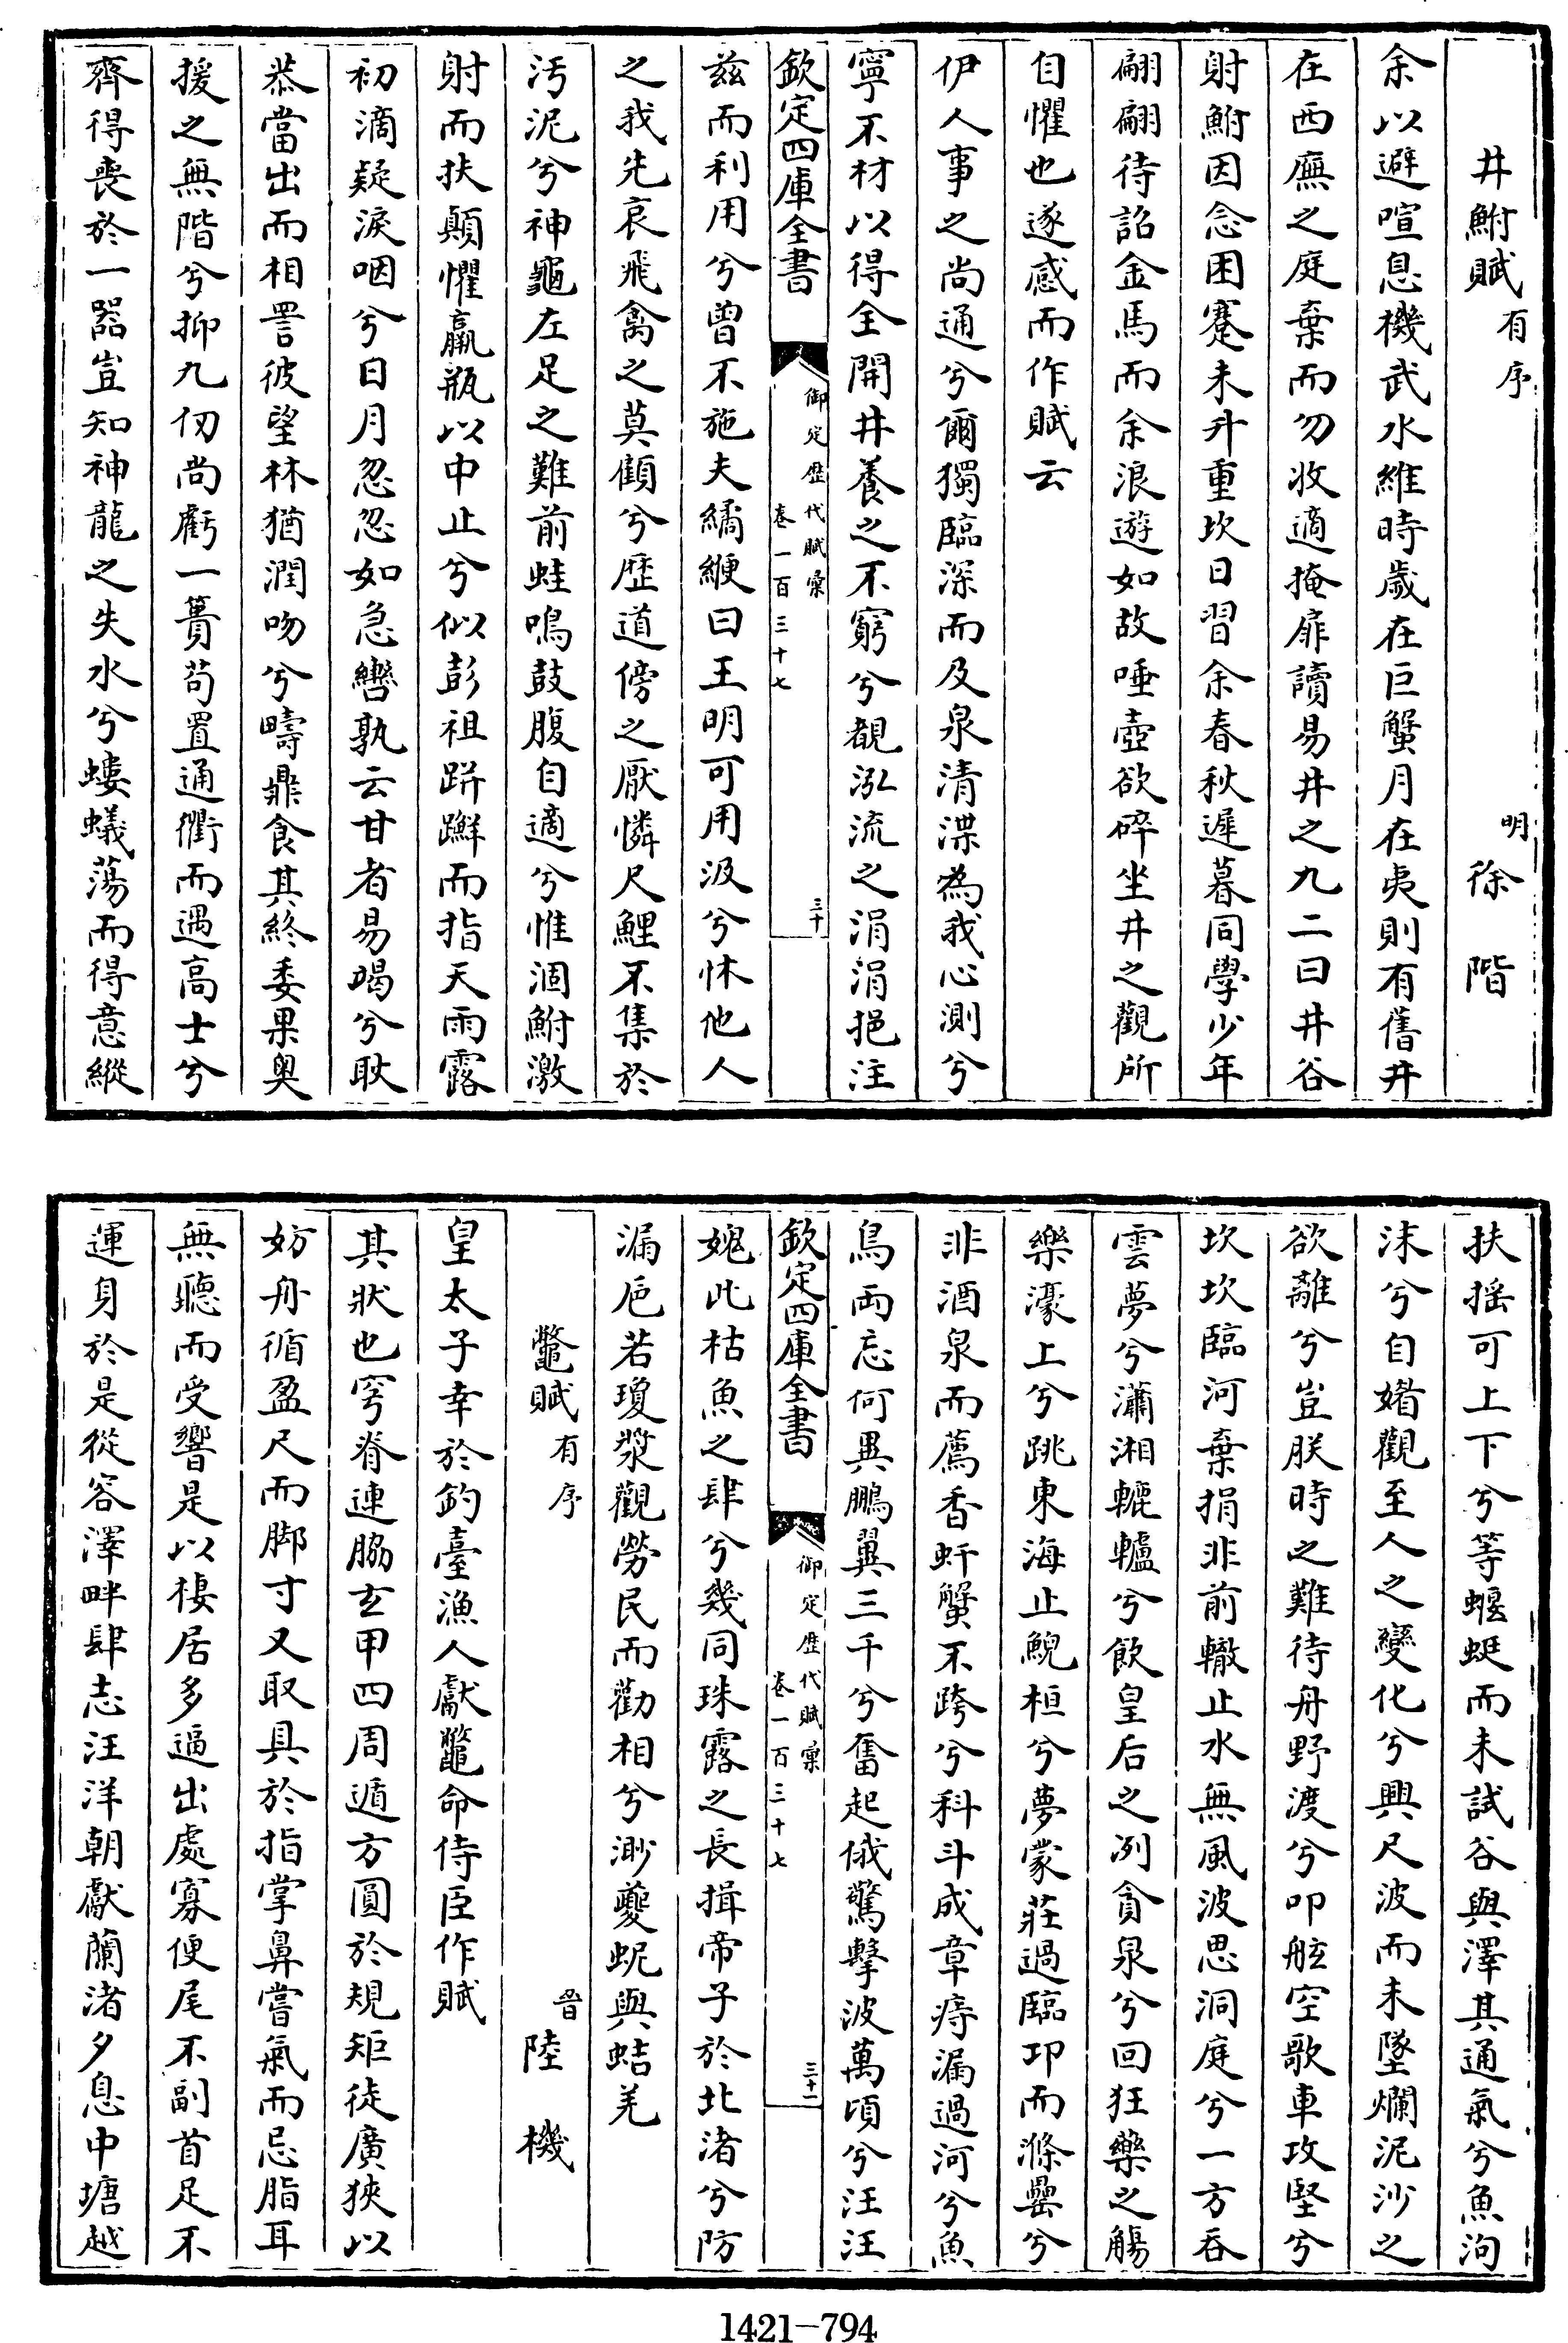 井鮒賦有序 明徐階
余以避喧息機武水維時歲在巨蟹月在夷則有舊井
在西廡之庭棄而勿收適掩扉讀易井之九二曰井谷
射鮒因念困蹇未升重坎日習余春秋遲暮同學少年
翩翩待詔金馬而余浪遊如故唾壺欲碎坐井之觀所
自懼也遂感而作賦云
伊人事之尚通兮爾獨臨深而及泉清渫為我心測兮
寧不材以得全開井養之不窮兮覩泓流之涓涓挹注
欽定四庫全書 御定歷代賦彙 卷一百三十七 三十
茲而利用兮曾不施夫繘綆曰王明可用汲兮怵他人
之我先哀飛禽之莫顧兮歷道傍之厭憐尺鯉不集於
汚泥兮神龜左足之難前蛙鳴鼓腹自適兮惟涸鮒激
射而扶顛懼羸瓶以中止兮似彭祖跰𨇤而指天雨露
初滴疑淚咽兮日月忽忽如急轡孰云甘者易竭兮耿
恭當出而相詈彼望林猶潤吻兮疇鼎食其終委果奥
援之無階兮抑九仞尚虧一簣苟置通衢而遇高士兮
齊得喪於一嚣豈知神龍之失水兮螻蟻蕩而得意縱
扶摇可上下兮等蝘蜓而未試谷與澤其通氣兮魚泃
沫兮自媘觀至人之變化兮興尺波而未墜爛泥沙之
欲離兮豈朕時之難待舟野渡兮叩舷空歌車攻堅兮
坎坎臨河棄捐非前轍止水無風波思洞庭兮一方吞
雲夢兮瀟湘轆轤兮飲皇后之冽貪泉兮回狂藥之觴
樂濠上兮跳東海止鯢桓兮夢蒙莊過臨邛而滌罍兮
非酒泉而薦香虷蟹不跨兮科斗成章痔漏過河兮魚
鳥兩忘何異鵬翼三千兮奮起俄驚擊波萬頃兮汪汪
欽定四庫全書 御定歷代賦彙 卷一百三十七 三十一
媿此枯魚之肆兮幾同珠露之長揖帝子於北渚兮防
漏巵若瓊漿觀勞民而勸相兮渺夔蚭與蛣羌
鼈賦有序 晉陸機
皇太子幸於釣臺漁人獻鼈命侍臣作賦
其狀也穹脊連脇玄甲四周遁方圓於規矩徒廣狹以
妨舟循盈尺而脚寸又取具於指掌鼻嘗氣而忌脂耳
無聽而受響是以棲居多逼出處寡便尾不副首足不
運身於是從容澤畔肆志汪洋朝獻蘭渚夕息中塘越
1421-794